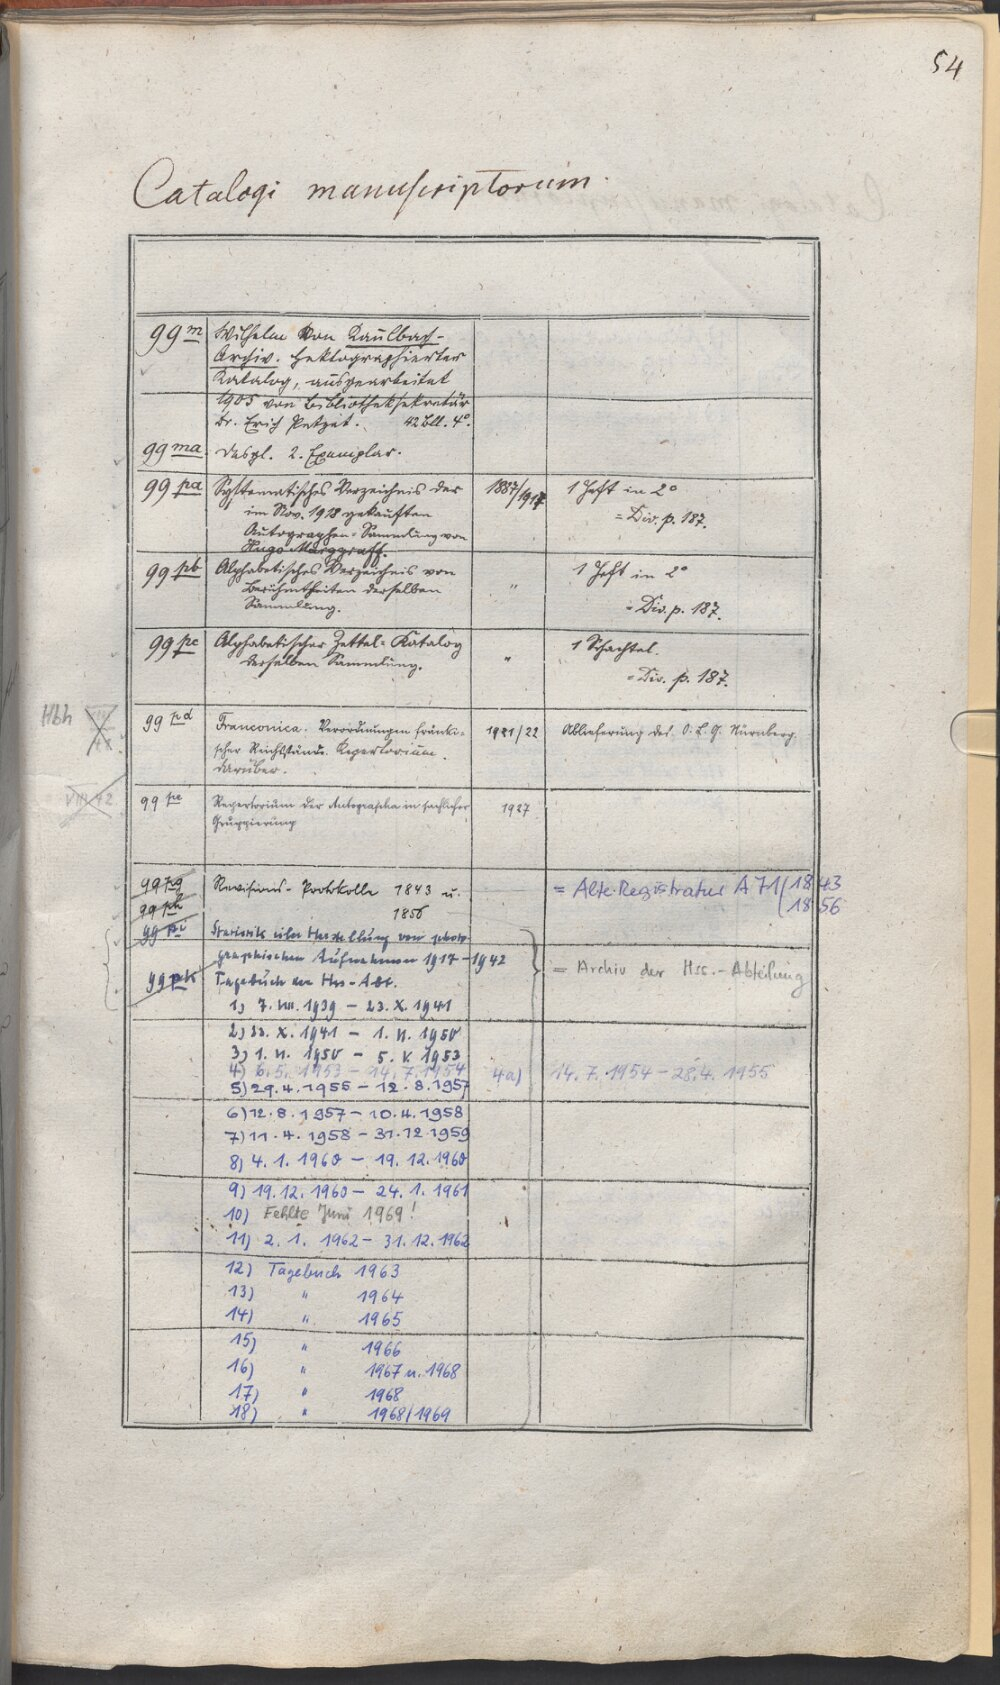 54
Catalogi manuscriptorum.
99 m Wilhelm von Kaulbach-
Archiv. Hektographierter
Katalog, ausgearbeitet
1905 von Bibliotheksekretär
Dr. Erich Petzet. 42 Bll. 4°.
99 ma. Dasgl. 2. Exemplar.
99 pa Systematisches Verzeichnis der 1887/1917 1 Heft in 2°
im Nov. 1918 gekauften = Div. p. 187.
Autographen-Sammlung von
Hugo Marggraff.
99 pb Alphabetisches Verzeichnis von 1 Heft in 2°
Berühmtheiten derselben "
Sammlung. = Div. p. 187.
99 pc Alphabetischer Zettel-Katalog 1 Schachtel.
derselben Sammlung. " = Div. p. 187.
Hbh
99 pd Franconica. Verordnungen fränki- 1921/22 Ablieferung des O. L. G. Nürnberg.
scher Reichsstände. Repertorium
darüber.
VIII 42
99 pe Repertorium der Autographa in sachlicher 1927
Gruppierung
99 pg Revisions-Protokolle 1843 u. = Alte Registratur A 71/1843
99 ph 1856 1856
99 pi Statistik über Herstellung von photo-
graphischen Aufnahmen 1917-1942
99 pk Tagebuch der Hss-Abt. = Archiv der Hss.-Abteilung
1) 7. VIII. 1939 – 23. X. 1941
2) 23. X. 1941 – 1. II. 1950
3) 1. II. 1950 – 5. V. 1953
4) 6. 5. 1953 – 14. 7. 1954 4a) 14. 7. 1954 – 28. 4. 1955
5) 29. 4. 1955 – 12. 8. 1957
6) 12. 8. 1957 – 10. 4. 1958
7) 11. 4. 1958 – 31. 12. 1959
8) 4. 1. 1960 – 19. 12. 1960
9) 19. 12. 1960 – 24. 1. 1961
10) Fehlte Juni 1969!
11) 2. 1. 1962 – 31. 12. 1962
12) Tagebuch 1963
13) " 1964
14) " 1965
15) " 1966
16) " 1967 u. 1968
17) " 1968
18) " 1968/1969